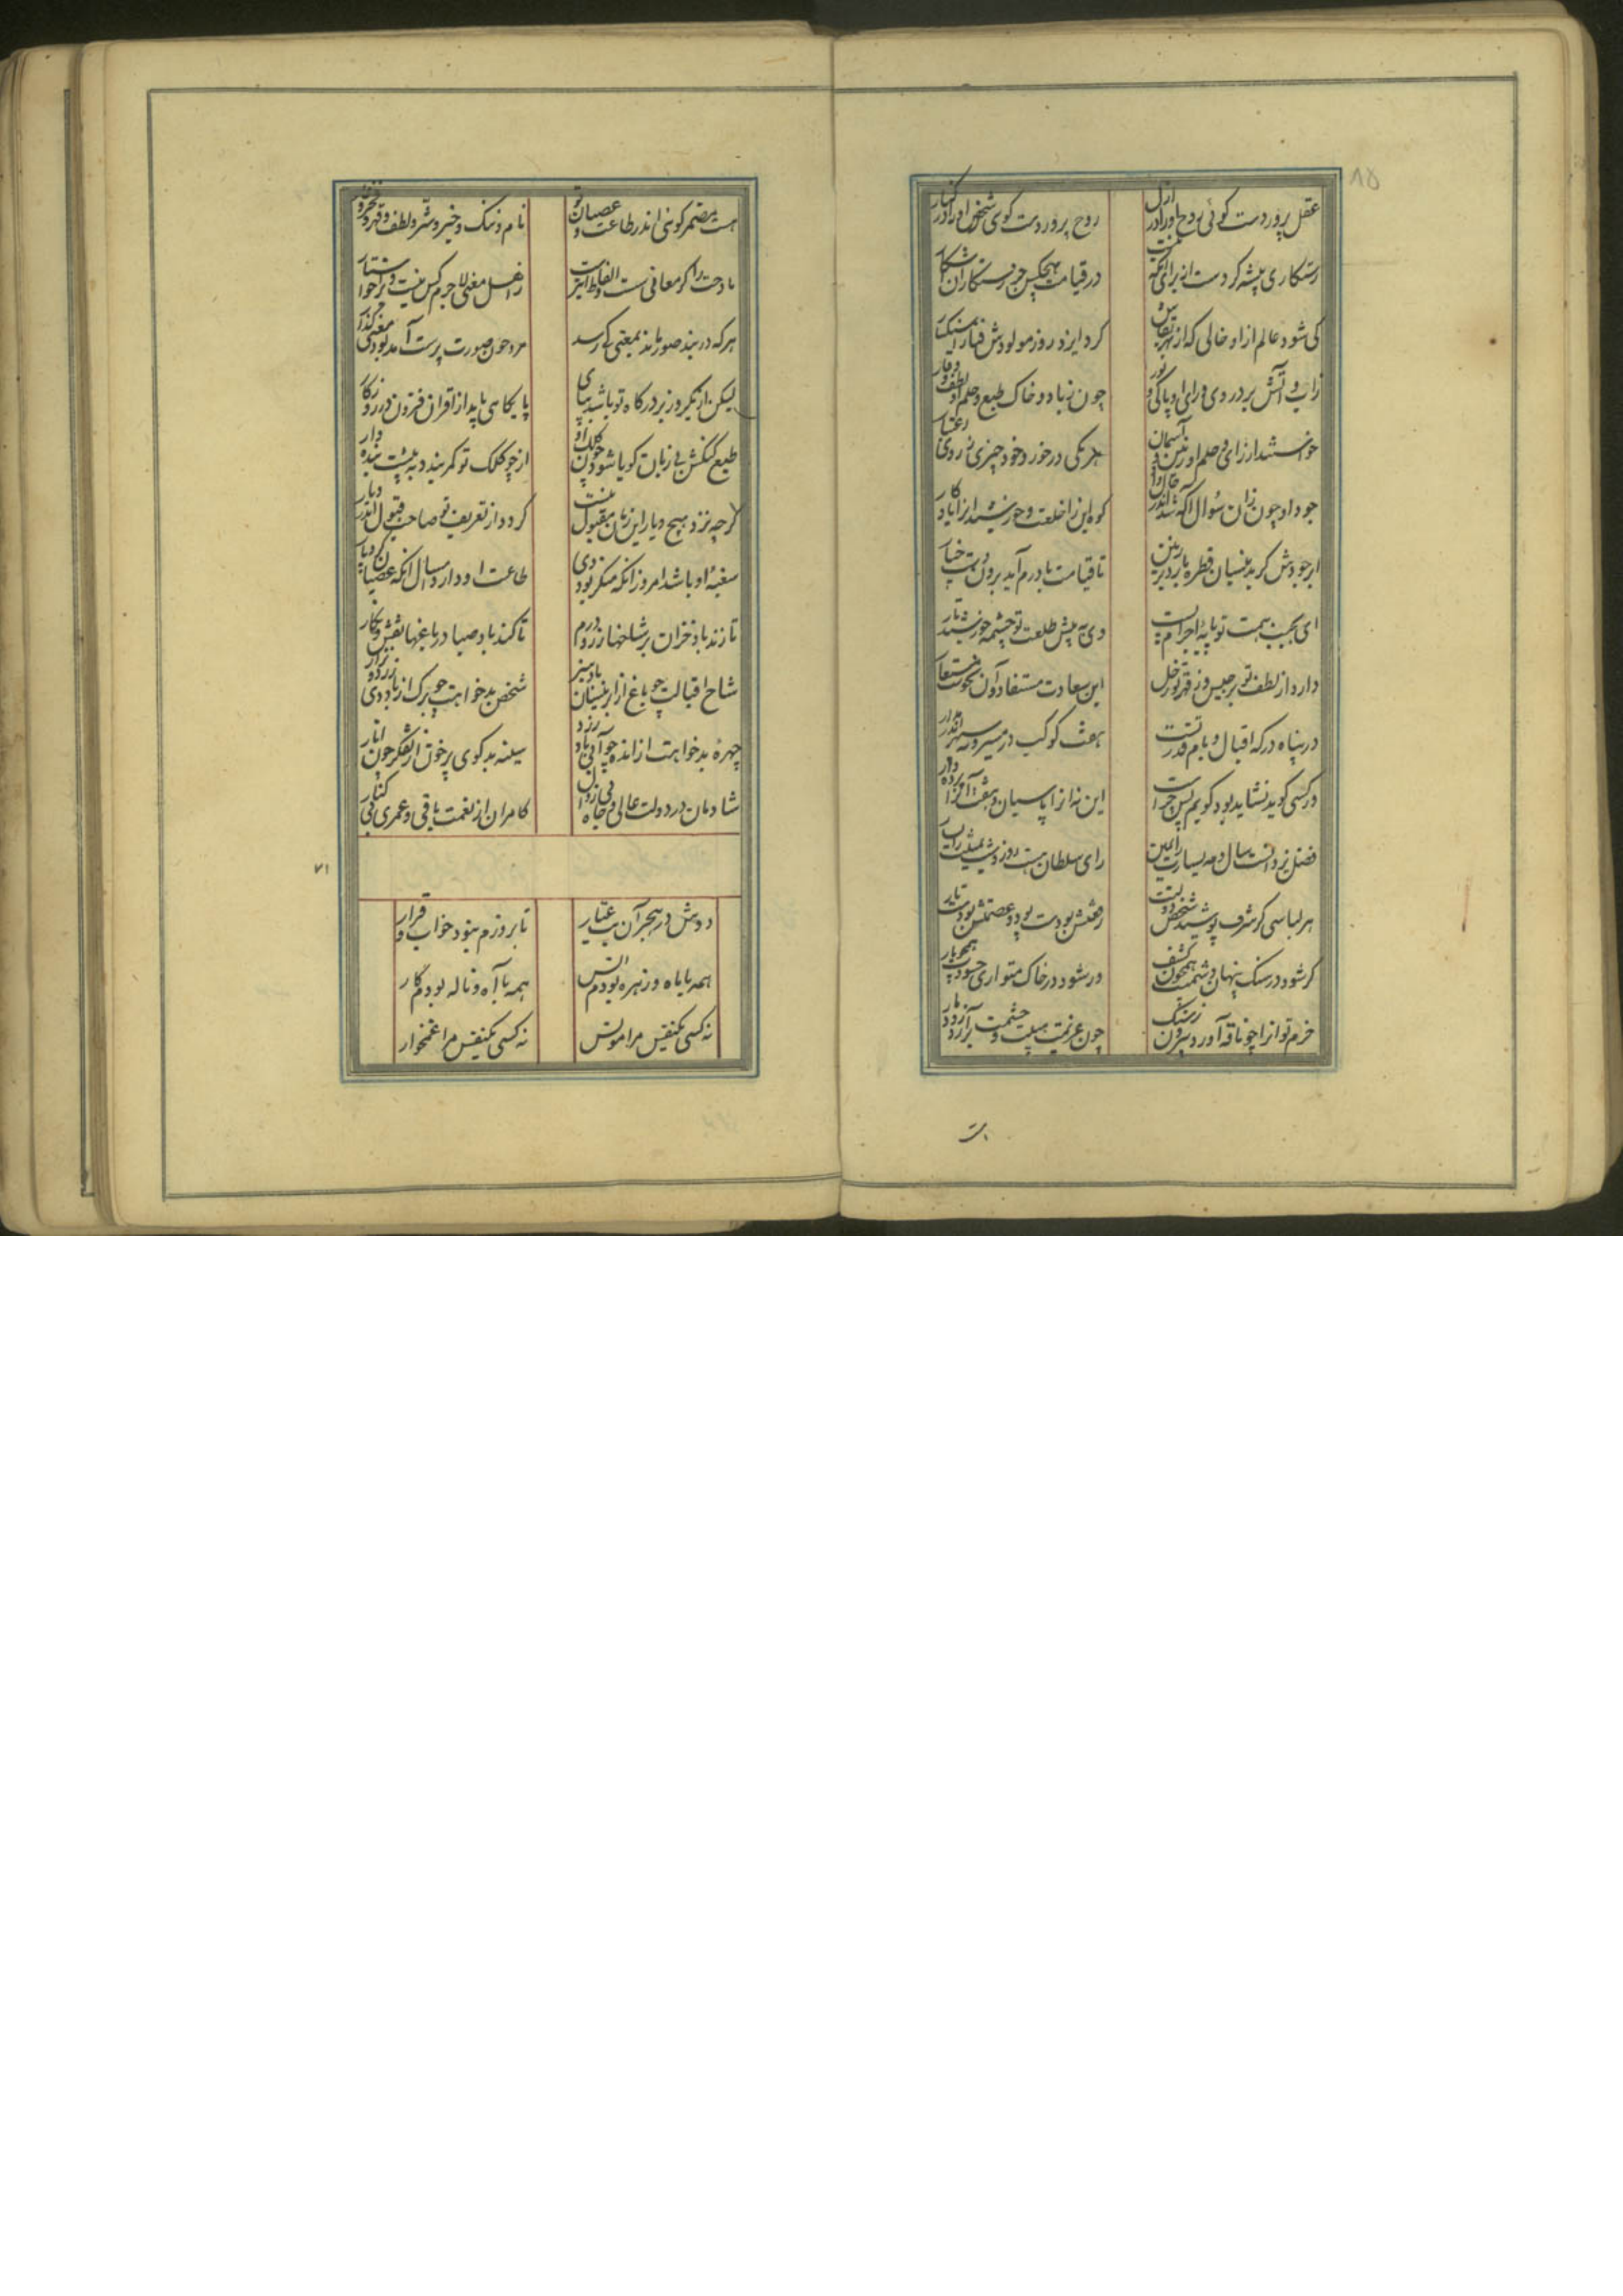 ۸۵
عقل پرور دست گوئی روح او را در ازل
روح پرور دست گوی شخص او را در کنار
رستکاری پیشه کردست از برای آنکه نیست
در قیامت هیچکس جز رستکاران رستگار
کی شود عالم از او خالی که از بهر بقاش
کرد ایزد روز مولودش فنا را سنگسار
زاب و آتش برد روی و رای او پاکی و نور
چون ز باد و خاک طبع و حلم او لطف و وقار
خواستند از رای و حلم او زمین و آسمان
هر یکی در خورد خود چیزی ز روی اعتبار
جود او چون زان سؤال آگه شد اندر حال داد
کوه این را خلعت و خورشید آنرا یادگار
ابر جودش گر به نیسان قطره بارد بر زمین
تا قیامت با درم آید برون دست چنار
ای بجنب همت تو پایه اجرام پست
وی به پیش طلعت تو چشمه خورشید تار
دارد از لطف تو برجیس و ز قهر تو زحل
این سعادت مستفاد و آن نحوست مستعار
در پناه درگه اقبال و بام قدر تست
هفت کوکب در مسیر و نه سپهر اندر مدار
ور کسی گوید نشاید بود گویم پس چراست
این نه آنرا پاسبان و هفت آنرا پرده دار
فضل یزدانست سال و مه یسارت را یمین
رای سلطان هست روز و شب یمینت را یسار
هر لباسی کز شرف پوشید شخص دولتت
رفعتش بودست پود و عصمتش بودست تار
گر شود در سنک پنهان دشمنت همچون کشف
ور شود در خاک متواری حسودت همچو مار
حزم تو آنرا چو ناقه آورد بیرون ز سنگ
چون عزیمت هیبت و خشمت برآرد زو دمار
هست مضمر گوئی اندر طاعت و عصیان تو
نام و ننک و خیر و شر و لطف و قهر و فخر و عار
مادحت را گر معانی هست و الفاظ نیست
زاهل معنی لاجرم کس نیست او را خواستار
هر که در بند صور ماند بمعنی کی رسد
مرد چون صورت پرست آمد بود معنی گذار
لیکن ار یکروز بر درگاه تو باشد بپای
پایگاهی یابد از اقران فزون در روزگار
طبع گنگش بی زبان گویا شود چون کلک او
ار چو کلک تو کمر بندد به پیشت بنده وار
گرچه نزد هیچ دیار این زمان مقبول نیست
گردد از تعریف تو صاحب قبول اندر دیار
سغبه او باشد امروز آنکه منکر بود دی
طاعت او دارد امسال آنکه عصیان کرد پار
تا زند باد خزان بر شاخها زر و درم
تا کند باد صبا در باغها نقش و نگار
شاخ اقبالت چو باغ از ابر نیسان باد سبز
شخص بدخواهت چو برک از باد دی زرد و نزار
چهره بدخواهت از انده چو آبی باد زرد
سینه بدگوی پر خون از تفکر چون انار
شادمان در دولت عالی و جاه بی زوال
کامران از نعمت باقی و عمری بی کنار
۷۱
دوش در هجر آن بت عیار
تا بروزم نبود خواب و قرار
همه با ماه و زهره بودم انس
همه با آه و ناله بودم کار
نه کسی یکنفس مرا مونس
نه کسی یکنفس مرا غمخوار